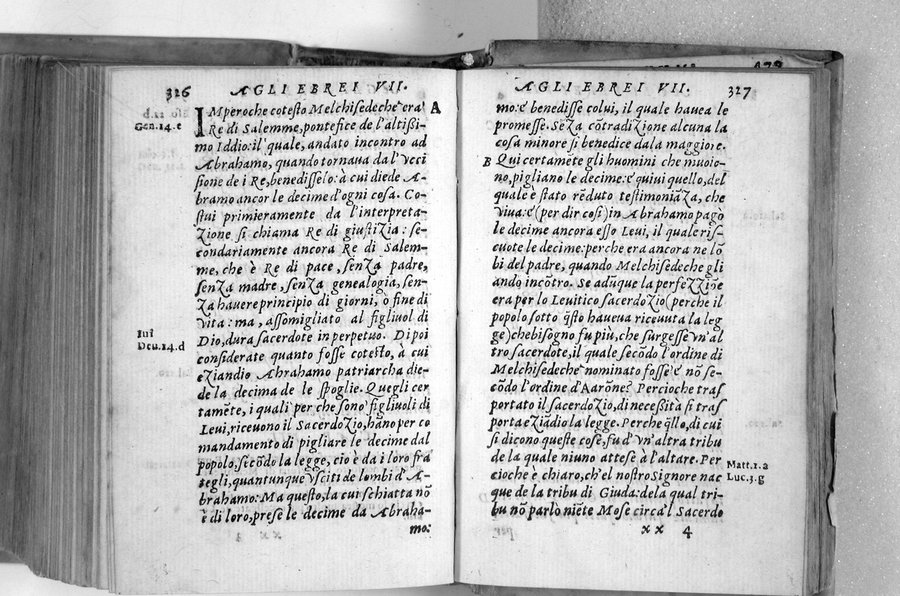 326 AGLI EBREI VII.
IMperoche cotesto Melchisedeche era A
Gen.14.e Re di Salemme, pontefice de l'altißi-
mo Iddio: il quale, andato incontro ad
Abrahamo, quando tornaua dal'vcci
sione de i Re, benedisselo: à cui diede A-
bramo ancor le decime d'ogni cosa. Co-
stui primieramente da l'interpreta-
zione si chiama Re di giustizia: se-
condariamente ancora Re di Salem-
me, che è Re di pace, senza padre,
senza madre, senza genealogia, sen-
za hauere principio di giorni, ò fine di
vita: ma, assomigliato al figliuol di
Iui Dio, dura sacerdote in perpetuo. Di poi
Deu.14.d considerate quanto fosse cotesto, à cui
eziandio Abrahamo patriarcha die-
de la decima de le spoglie. Quegli cer
tamẽte, i quali per che sono figliuoli di
Leui, riceuono il Sacerdozio, hãno per co
mandamento di pigliare le decime dal
popolo, secõdo la legge, cio è da i loro fra
tegli, quantunque vsciti de lombi d'A-
brahamo: Ma questo, la cui schiatta nõ
è di loro, prese le decime da Abraha-
mo:
AGLI EBREI VII. 327
mo: e' benedisse colui, il quale hauea le
promesse. Seza cõtradizione alcuna la
cosa minore si benedice dala maggiore.
B Qui certamẽte gli huomini che muoio-
no, pigliano le decime: e' quiui quello, del
quale è stato rẽduto testimoniãza, che
viua: e' (per dir cosi) in Abrahamo pagò
le decime ancora esso Leui, il quale ris-
cuote le decime: perche era ancora ne lõ
bi del padre, quando Melchisedeche gli
andò incõtro. Se aduque la perfezziõe
era per lo Leuitico sacerdozio (perche il
popolo sotto q̃sto haueua riceuuta la leg
ge) che bisogno fu più, che surgesse vn'al
tro sacerdote, il quale secõdo l'ordine di
Melchisedeche nominato fosse e' nõ se-
cõdo l'ordine d'Aarõne? Percioche tras
portato il sacerdozio, di neceßità si tras
porta eziãdio la legge. Perche q̃llo, di cui
si dicono queste cose, fu d'vn'altra tribu
de la quale niuno attese à l'altare. Per Matt.1.a
cioche è chiaro, ch'el nostro Signore nac Luc.3.g
que de la tribu di Giuda: dela qual tri-
bu nõ parlò niẽte Mose circa'l Sacerdo
xx 4